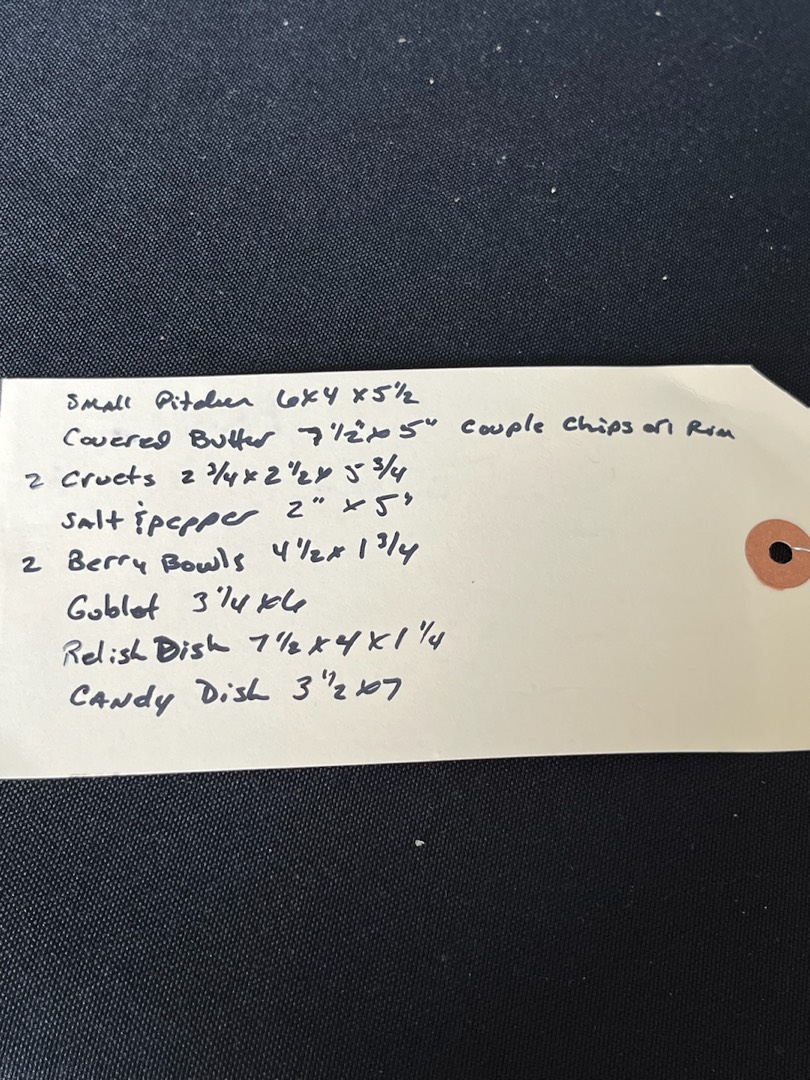 Small Pitcher 6x4 x5 1/2
Covered Butter 7 1/2" x 5" couple chips on Rim
2 Cruets 2 3/4 x 2 1/2 x 5 3/4
Salt & pepper 2" x 5"
2 Berry Bowls 4 1/2 x 1 3/4
Goblet 3 1/4 x 6
Relish Dish 7 1/2 x 4 x 1 1/4
CANDY Dish 3 1/2 x 7